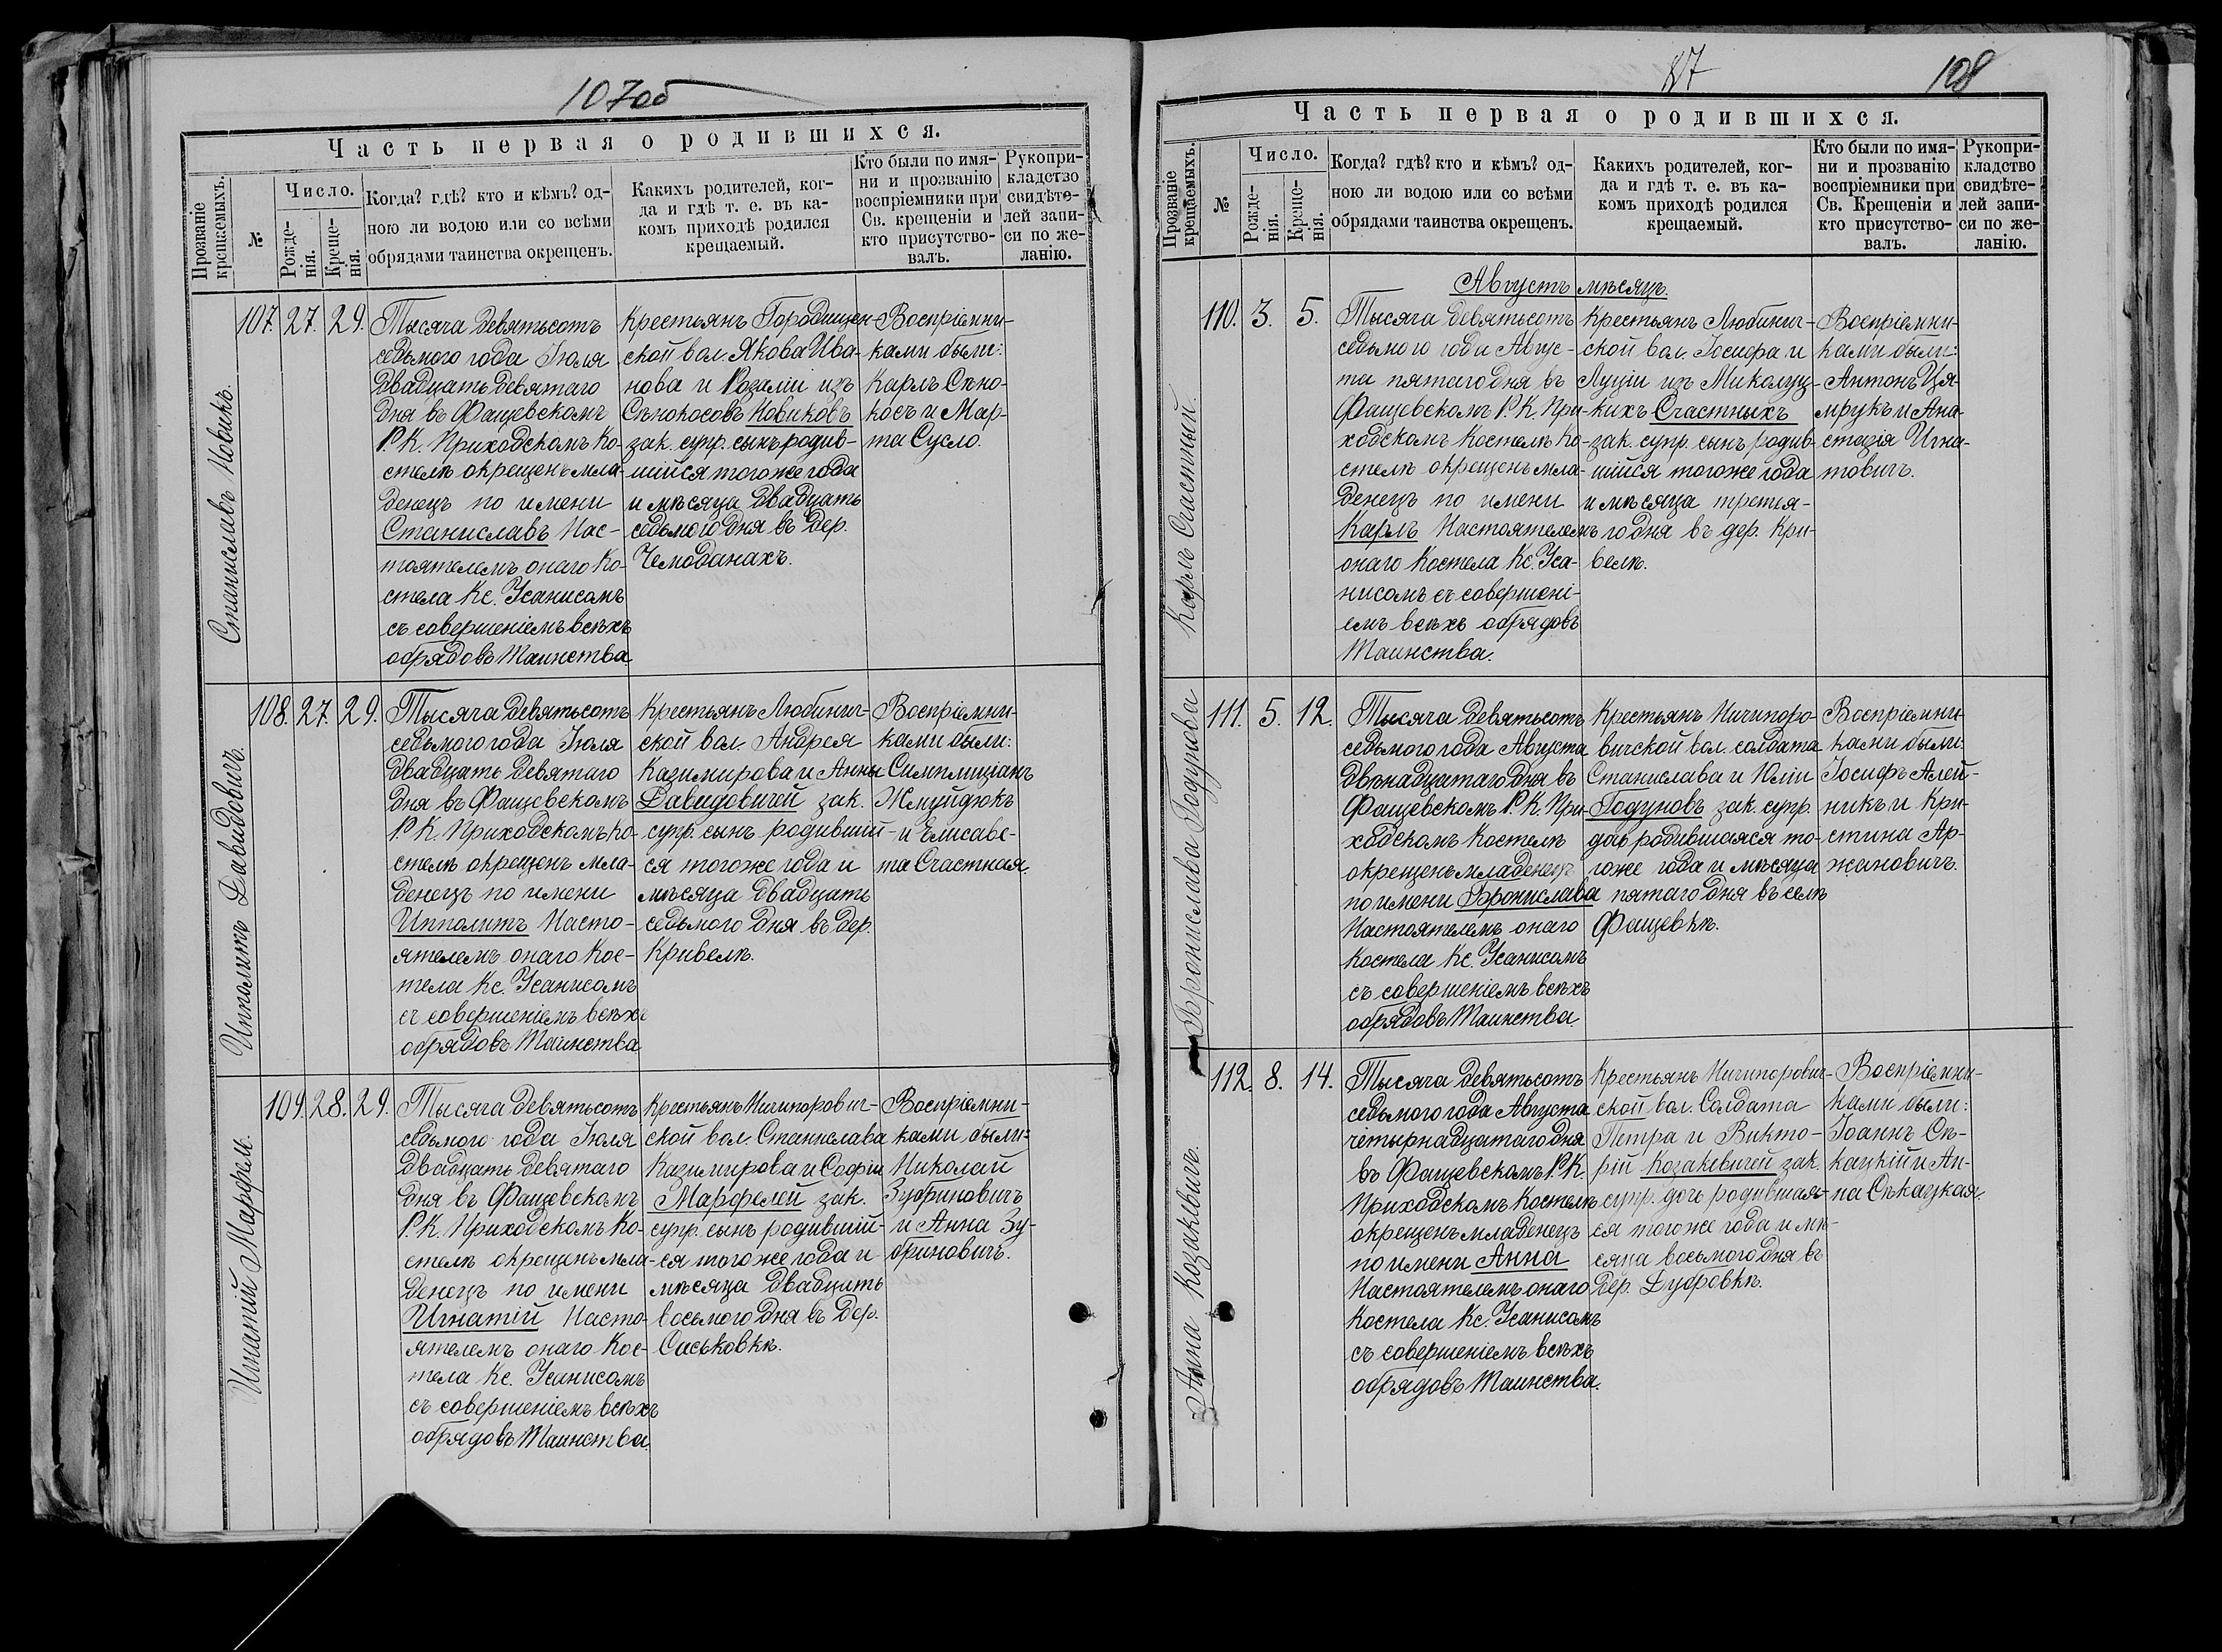 107об
Часть первая о родившихся.
Прозваніе крещаемыхъ.
№
Число.
Рожде-
нія.
Креще-
нія.
Когда? гдѣ? кто и кѣмъ? од-
ною ли водою или со всѣми
обрядами таинства окрещенъ.
Какихъ родителей, ког-
да и гдѣ т. е. въ ка-
комъ приходѣ родился
крещаемый.
Кто были по имя-
ни и прозванію
воспріемники при
Св. крещеніи и
кто присутство-
валъ.
Рукопри-
кладство
свидѣте-
лей запи-
си по же-
ланію.
Станиславъ Новикъ.
107. 27. 29.
Тысяча девятьсотъ
седьмого года Іюля
двадцать девятаго
дня въ Фащевскомъ
Р. К. Приходскомъ Ко-
стелѣ окрещенъ мла-
денецъ по имени
Станиславъ Нас-
тоятелемъ онаго Ко-
стела Кс. Усанисомъ
съ совершеніемъ всѣхъ
обрядовъ Таинства.
Крестьянъ Городищен-
ской вол. Якова Ива-
нова и Розаліи изъ
Сѣнокосовъ Новиковъ
зак. супр. сынъ родив-
шійся того же года
и мѣсяца двадцать
седьмого дня въ дер.
Чемоданахъ.
Воспріемни-
ками были:
Карлъ Сѣно-
косъ и Мар-
та Сусло.
Ипполитъ Давидовичъ.
108. 27. 29.
Тысяча девятьсотъ
седьмого года Іюля
двадцать девятаго
дня въ Фащевскомъ
Р. К. Приходскомъ Ко-
стелѣ окрещенъ мла-
денецъ по имени
Ипполитъ Насто-
ятелемъ онаго Кос-
тела Кс. Усанисомъ
съ совершеніемъ всѣхъ
обрядовъ Таинства
Крестьянъ Любинич-
ской вол. Андрея
Казимирова и Анны
Давидовичей зак.
супр. сынъ родивший-
ся того же года и
мѣсяца двадцать
седьмого дня въ дер.
Кривелѣ.
Воспріемни-
ками были:
Симплиціанъ
Жмуйдюкъ
и Елисаве-
та Счастная.
Игнатій Марфель.
109. 28. 29.
Тысяча девятьсотъ
седьмого года Іюля
двадцать девятаго
дня въ Фащевскомъ
Р. К. Приходскомъ Ко-
стелѣ окрещенъ мла-
денецъ по имени
Игнатій Насто-
ятелемъ онаго Кос-
тела Кс. Усанисомъ
съ совершеніемъ всѣхъ
обрядовъ Таинства.
Крестьянъ Ничипорович-
ской вол. Станислава
Казимирова и Софіи
Марфелей зак.
супр. сынъ родивший-
ся того же года и
мѣсяца двадцать
восьмого дня въ дер.
Саськовкѣ.
Воспріемни-
ками были:
Николай
Зубриновичъ
и Анна Зу-
бриновичъ.
108
Часть первая о родившихся.
Прозваніе крещаемыхъ.
№
Число.
Рожде-
нія.
Креще-
нія.
Когда? гдѣ? кто и кѣмъ? од-
ною ли водою или со всѣми
обрядами таинства окрещенъ.
Какихъ родителей, ког-
да и гдѣ т. е. въ ка-
комъ приходѣ родился
крещаемый.
Кто были по имя-
ни и прозванію
воспріемники при
Св. Крещеніи и
кто присутство-
валъ.
Рукопри-
кладство
свидѣте-
лей запи-
си по же-
ланію.
Августъ мѣсяцъ.
Карлъ Счастный.
110. 3. 5.
Тысяча девятьсотъ
седьмого года Авгус-
та пятаго дня въ
Фащевскомъ Р. К. При-
ходскомъ Костелѣ Ко-
стелѣ окрещенъ мла-
денецъ по имени
Карлъ Настоятелемъ
онаго Костела Кс. Уса-
нисомъ съ совершені-
емъ всѣхъ обрядовъ
Таинства.
Крестьянъ Любинич-
ской вол. Іосифа и
Луціи изъ Миколуц-
кихъ Счастныхъ
зак. супр. сынъ родив-
шійся того же года
и мѣсяца третья-
го дня въ дер. Кри-
велѣ.
Воспріемни-
ками были:
Антонъ Ця-
мрукъ и Ана-
стазія Игна-
товичъ.
Бронислава Годунова
111. 5. 12.
Тысяча девятьсотъ
седьмого года Августа
двѣнадцатаго дня въ
Фащевскомъ Р. К. При-
ходскомъ Костелѣ
окрещенъ младенецъ
по имени Бронислава
Настоятелемъ онаго
Костела Кс. Усанисомъ
съ совершеніемъ всѣхъ
обрядовъ Таинства.
Крестьянъ Ничипоро-
вичской вол. солдата
Станислава и Юліи
Годуновъ зак. супр.
дочь родившаяся то-
гоже года и мѣсяца
пятаго дня въ селѣ
Фащевкѣ.
Воспріемни-
ками были:
Іосифъ Алей-
никъ и Кри-
стина Ар-
жановичъ.
Анна Козакевичъ.
112. 8. 14.
Тысяча девятьсотъ
седьмого года Августа
четырнадцатаго дня
въ Фащевскомъ Р. К.
Приходскомъ Костелѣ
окрещенъ младенецъ
по имени Анна
Настоятелемъ онаго
Костела Кс. Усанисомъ
съ совершеніемъ всѣхъ
обрядовъ Таинства.
Крестьянъ Ничипорович-
ской вол. Солдата
Петра и Викто-
рій Козакевичей зак.
супр. дочь родившая-
ся того же года и мѣ-
сяца восьмого дня въ
дер. Дубровкѣ.
Воспріемни-
ками были:
Іоаннъ Сѣ-
кацкій и Ан-
на Сѣкацкая.